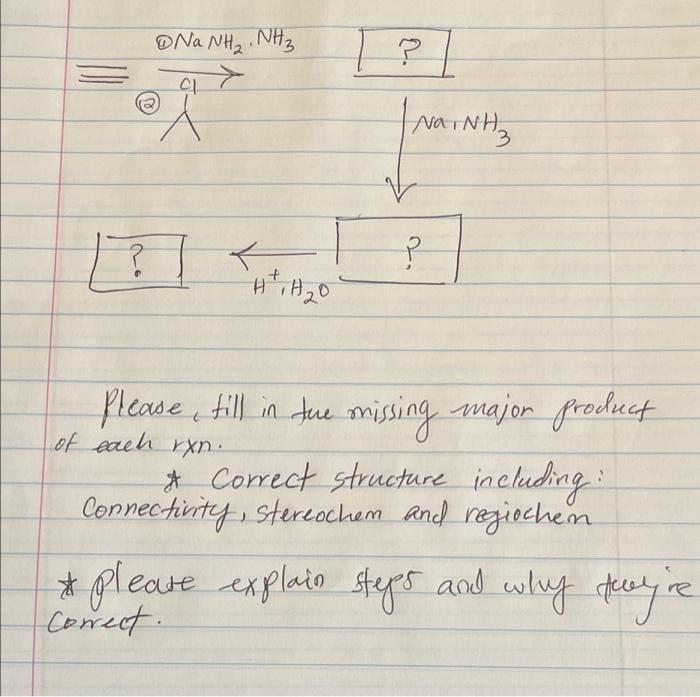 ① NaNH2, NH3
?
② Cl
Na, NH3
?
?
H+, H2O
Please, fill in the missing major product
of each rxn.
* Correct structure including:
Connectivity, stereochem and regiochem
* please explain steps and why they're
correct.